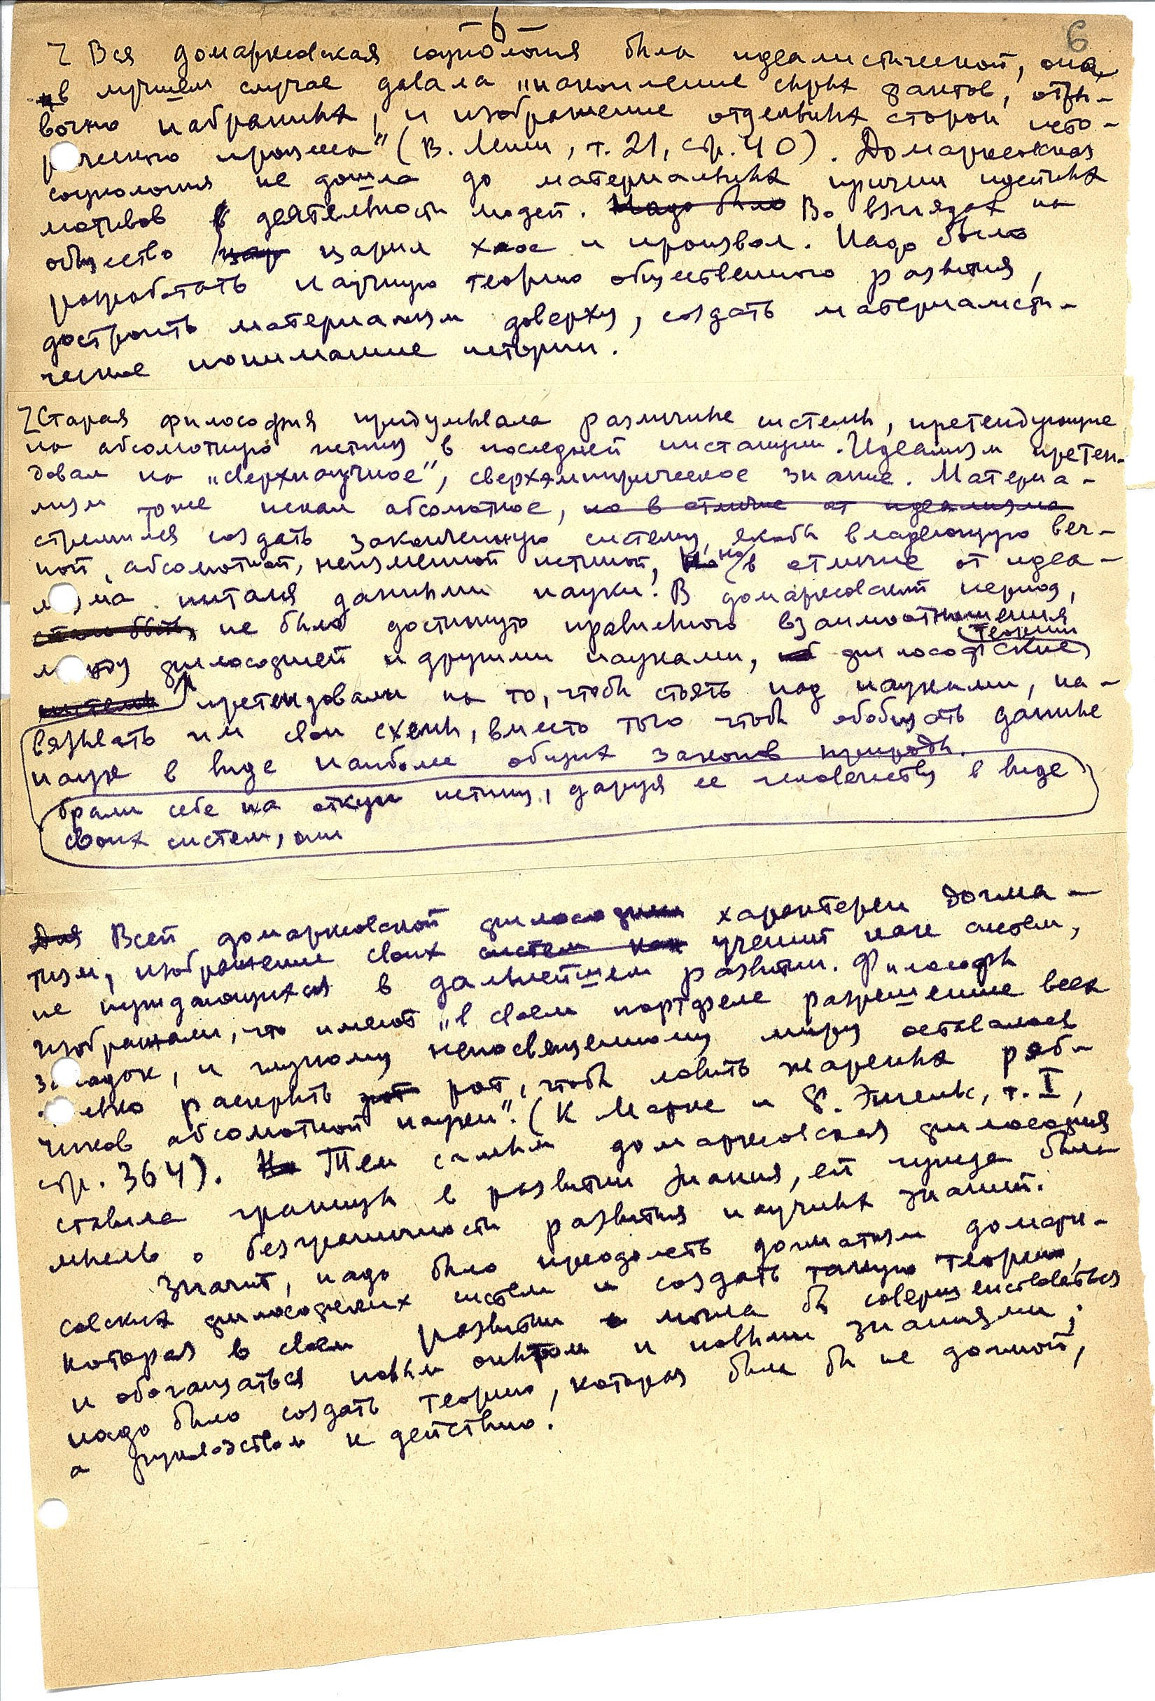 6
6
Z Вся домарксовская социология была идеалистической, она,
в лучшем случае давала „накопление сырых фактов, отры-
вочно набранных, и изображение отдельных сторон исто-
рического процесса" (В. Ленин, т. 21, стр. 40). Домарксовская
социология не дошла до материальных причин идейных
мотивов в деятельности людей. Надо было Во взглядах на
общество цар царил хаос и произвол. Надо было
разработать научную теорию общественного развития,
достроить материализм доверху, создать материалисти-
ческое понимание истории.
Z Старая философия придумывала различные системы, претендующие
на абсолютную истину в последней инстанции. Идеализм претен-
довал на „сверхнаучное", сверхэмпирическое знание. Материа-
лизм тоже искал абсолютное, но в отличие от идеализма
стремился создать законченную систему, якобы владеющую веч-
ной, абсолютной, неизменной истиной, но но в отличие от идеа-
лизма питался данными науки. В домарксовский период,
стало быть, не было достигнуто правильного взаимоотношения
между философией и другими науками, философские теории
системы претендовали на то, чтобы стоять над науками, на-
вязывать им свои схемы, вместо того чтобы обобщать данные
наук в виде наиболее общих законов природы.
брали себе на откуп истину, даруя ее человечеству в виде
своих систем, они
Для Всей домарксовской философии характерен догма-
тизм, изображение своих систем как учений как систем,
не нуждающихся в дальнейшем развитии. Философы
изображали, что имеют „в своем портфеле разрешение всех
загадок, и глупому непосвященному миру оставалось
только раскрыть рот рот, чтобы ловить жареных ряб-
чиков абсолютной науки". (К Маркс и Ф. Энгельс, т. I,
стр. 364). Но Тем самым домарксовская философия
ставила границы в развитии знания, ей чужда была
мысль о безграничности развития научных знаний.
Значит, надо было преодолеть догматизм домарк-
совских философских систем и создать такую теорию,
которая в своем развитии могла бы совершенствоваться
и обогащаться новым опытом и новыми знаниями;
надо было создать теорию, которая была бы не догмой,
а руководством к действию.